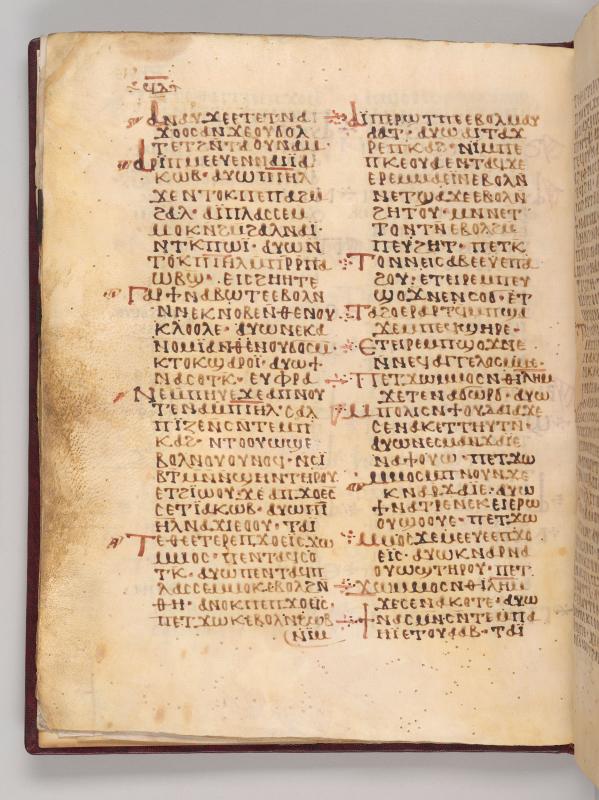 ⲁⲛⲁⲩϫⲉⲉⲧⲉⲧⲛⲁ
ϫⲟⲟⲥⲁⲛϫⲉⲟⲩϭⲟⲗ
ⲧⲉⲧϩⲛⲧⲁⲟⲩⲛⲁⲙ·
ⲁⲣⲓⲡⲙⲉⲉⲩⲉⲛⲛⲁⲓ̈ⲓ̈ⲁ
ⲕⲱⲃ· ⲁⲩⲱⲡⲓⲏⲗ
ϫⲉⲛⲧⲟⲕⲡⲉⲡⲁϩⲙ
ϩⲁⲗ· ⲁⲓ̈ⲡⲗⲁⲥⲥⲉⲙ
ⲙⲟⲕⲛϩⲙϩⲁⲗⲛⲁⲓ̈·
ⲛⲧⲕⲡⲱⲓ̈· ⲁⲩⲱⲛ
ⲧⲟⲕⲡⲓⲏⲗⲙⲡⲣⲣⲡⲁ
ⲱⲃϣ· ⲉⲓⲥϩⲏⲏⲧⲉ
ⲅⲁⲣϯⲛⲁϥⲱⲧⲉⲉⲃⲟⲗⲛ
ⲛⲛⲉⲕⲛⲟⲃⲉⲛⲑⲉⲛⲟⲩ
ⲕⲗⲟⲟⲗⲉ· ⲁⲩⲱⲛⲉⲕⲁ
ⲛⲟⲙⲓ̈ⲁⲛⲑⲉⲛⲟⲩϭⲟⲥⲙ·
ⲕⲧⲟⲕϣⲁⲣⲟⲓ̈· ⲁⲩⲱϯ
ⲛⲁⲥⲟⲧⲕ· ⲉⲩⲫⲣⲁ
ⲛⲉⲙⲡⲏⲩⲉϫⲉⲁⲡⲛⲟⲩ
ⲧⲉⲛⲁⲙⲡⲓⲏⲗ· ⲥⲁⲗ
ⲡⲓ̈ⲍⲉⲛⲥⲛⲧⲉⲙⲡ
ⲕⲁϩ· ⲛⲧⲟⲟⲩⲱϣⲉ
ⲃⲟⲗⲛⲟⲩⲟⲩⲛⲟϥ· ⲛⲥⲓ̈
ⲃⲧⲙⲛⲛϣⲏⲛⲧⲏⲣⲟⲩ
ⲉⲧϩⲓ̈ⲱⲟⲩ· ϫⲉⲁⲡϫⲟⲉⲓⲥ
ⲥⲉⲧⲓⲁⲕⲱⲃ· ⲁⲩⲱⲡⲓ
ⲏⲗⲛⲁϫⲓⲉⲟⲟⲩ· ⲧⲁⲓ̈
ⲧⲉⲑⲉⲉⲧⲉⲣⲉⲡϫⲟⲉⲓⲥϫⲱ
ⲙⲙⲟⲥ· ⲡⲉⲛⲧⲁϥⲥⲟ
ⲧⲕ· ⲁⲩⲱⲡⲉⲛⲧⲁϥⲡ
ⲗⲁⲥⲥⲉⲙⲙⲟⲕⲉⲃⲟⲗϩⲛ
ⲑⲏ· ⲁⲛⲟⲕⲡⲉⲡϫⲟⲉⲓⲥ·
ⲡⲉⲧϫⲱⲕⲉⲃⲟⲗⲛϩⲱⲃ
ⲛⲓ̈ⲙ
ⲁⲓ̈ⲡⲉⲣϣⲧⲡⲉⲉⲃⲟⲗⲙⲁⲩ
ⲁⲁⲧ· ⲁⲩⲱⲁⲓⲧⲁϫ
ⲣⲉⲡⲕⲁϩ· ⲛⲓ̈ⲙⲡⲉ
ⲡⲕⲉⲟⲩⲁⲉⲛⲧⲁϥϫⲉ
ⲉⲣⲉⲙⲙⲁⲉⲓ̈ⲛⲉⲃⲟⲗⲛ
ⲛⲉⲧϣⲁϫⲉⲉⲃⲟⲗⲛ
ϩⲏⲧⲟⲩ· ⲙⲛⲛⲉⲧ
ⲧⲟⲛⲧⲛⲉⲃⲟⲗϩⲙ
ⲡⲉⲩϩⲏⲧ· ⲡⲉⲧⲕ
ⲧⲟⲛⲛⲉⲓⲥⲁⲃⲉⲉⲩⲉⲡⲁ
ϩⲟⲩ· ⲉⲧⲉⲓⲣⲉⲙⲡⲉⲩ
ϣⲟϫⲛⲉⲛⲥⲟϭ· ⲉⲧ
ⲧⲁϩⲟⲉⲣⲁⲧϥⲙⲡϣⲁ
ϫⲉⲙⲡⲉϥϣⲏⲣⲉ·
ⲉⲧⲉⲓⲣⲉⲙⲡϣⲟϫⲛⲉ
ⲛⲛⲉϥⲁⲅⲅⲉⲗⲟⲥⲙⲙⲉ·
ⲡⲉⲧϫⲱⲙⲙⲟⲥⲛⲑⲓⲗⲏⲙ
ϫⲉⲧⲉⲛⲁϭⲱϭ· ⲁⲩⲱ
ⲙⲡⲟⲗⲓⲥⲛϯⲟⲩⲇⲁⲓⲁϫⲉ
ⲥⲉⲛⲁⲕⲉⲧⲧⲏⲩⲧⲛ·
ⲁⲩⲱⲛⲉⲥⲙⲁⲛϫⲁⲓ̈ⲉ
ⲛⲁϯⲟⲩⲱ· ⲡⲉⲧϫⲱ
ⲙⲙⲟⲥⲙⲡⲛⲟⲩⲛϫⲉ
ⲕⲛⲁⲣϫⲁⲓⲉ· ⲁⲩⲱ
ϯⲛⲁⲧⲣⲉⲛⲉⲕⲉⲓⲉⲣⲱ
ⲟⲩϣⲟⲟⲩⲉ· ⲡⲉⲧϫⲱ
ⲙⲙⲟⲥϫⲉⲙⲉⲉⲩⲉⲉⲡϫⲟ
ⲉⲓ̈ⲥ· ⲁⲩⲱⲕⲛⲁⲣⲛⲁ
ⲟⲩⲱϣⲧⲏⲣⲟⲩ· ⲡⲉⲧ
ϫⲱⲙⲙⲟⲥⲛⲑⲓⲗⲏⲙ
ϫⲉⲥⲉⲛⲁⲕⲟⲧⲉ· ⲁⲩⲱ
ϯⲛⲁⲥⲙⲛⲥⲛⲧⲉⲙⲡⲁ
ⲏⲓⲉⲧⲟⲩⲁⲁⲃ· ⲧⲁⲓ̈